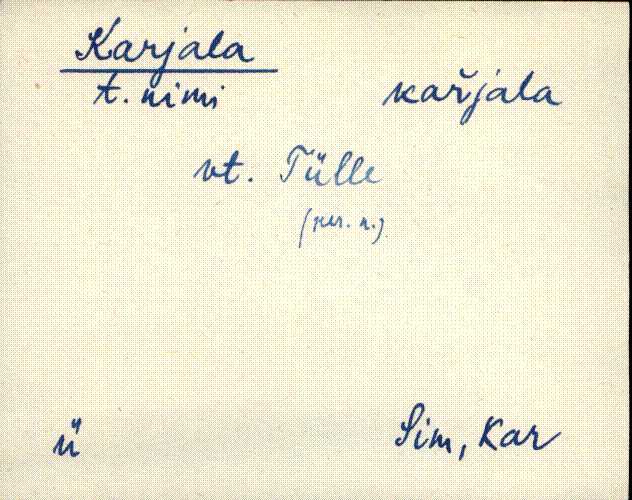 Karjala
t. nimi karjala
vt. Tülle
(per. n.)
ü Sim, Kar